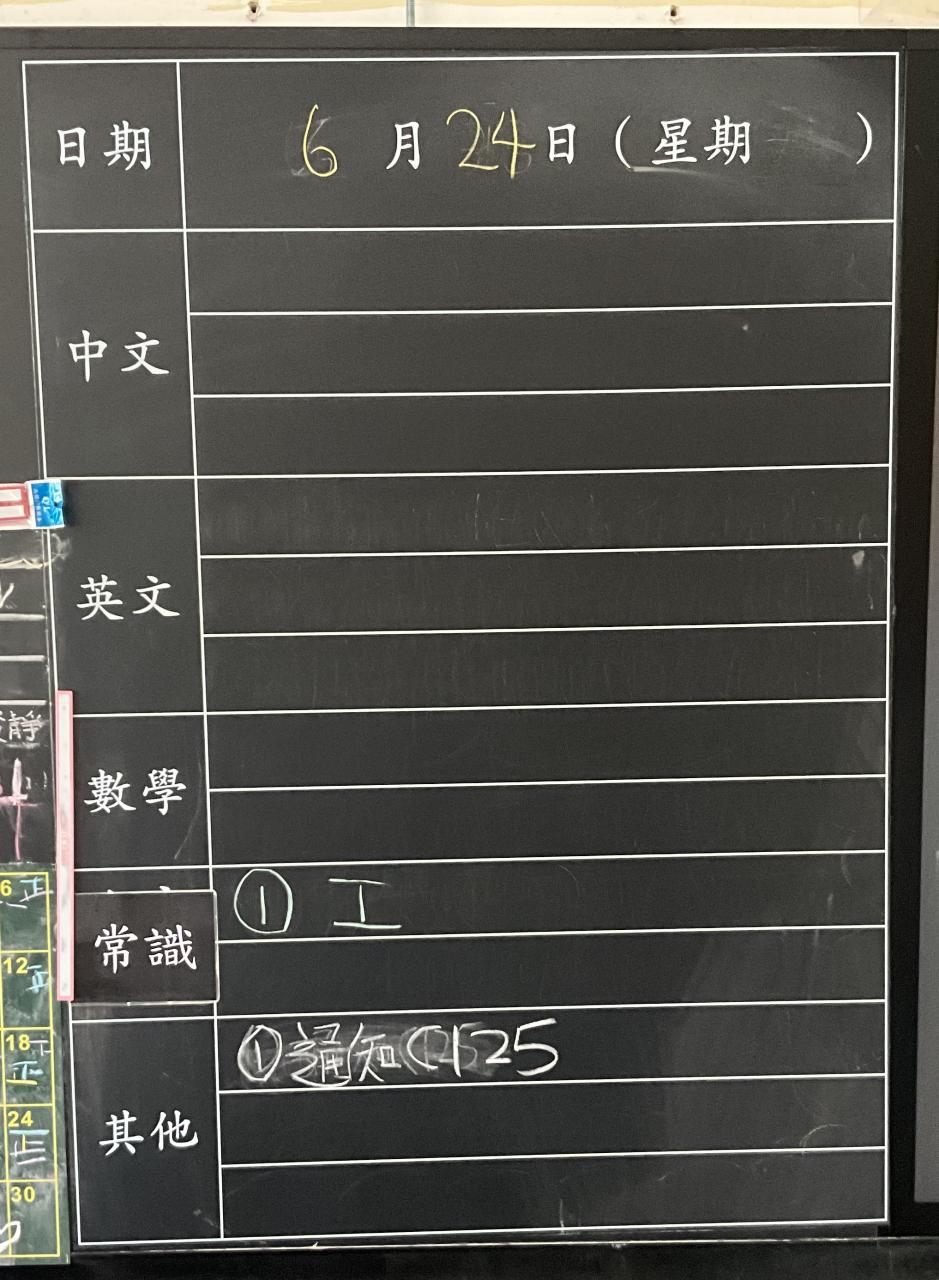 日期 6 月 24 日 ( 星期 )
中文
英文
數學
常識 ① 工
其他 ① 通知 125
靜
6 正
12 正
18
24
30